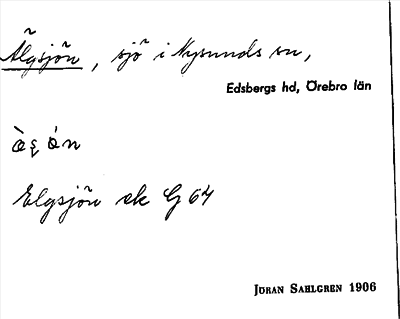 Älgsjön, sjö i Nysunds sn,
Edsbergs hd, Örebro län
Elgsjön ek G 64
JÖRAN SAHLGREN 1906